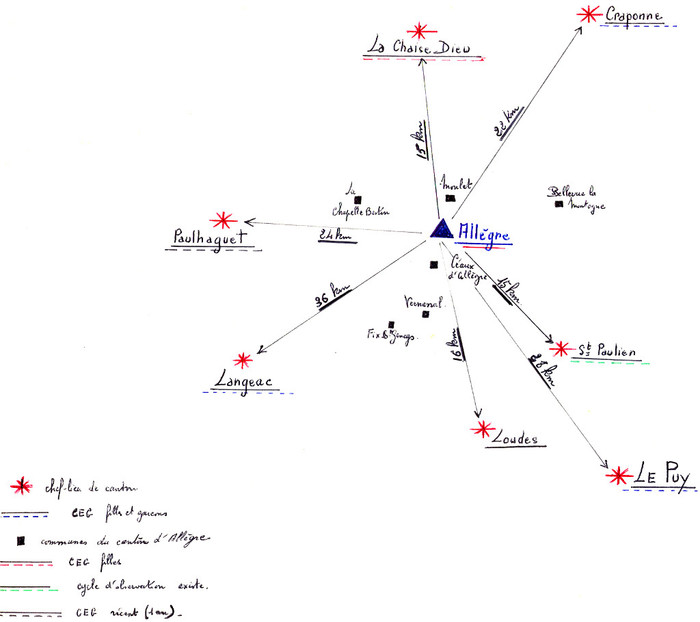 Craponne
La Chaise Dieu
22 km
15 km
La
Chapelle Bertin
Monlet
Bellevue la
Montagne
Paulhaguet
24 km
Allègre
Céaux
d'Allègre
36 km
15 km
Vernenal
Fix St Geneys.
16 km
28 km
St Paulien
Langeac
Loudes
LE PUY
chef-lieu de canton
CEG filles et garcons
communes du canton d'Allègre
CEG filles
cycle d'observation existe.
CEG récent (1 an)_